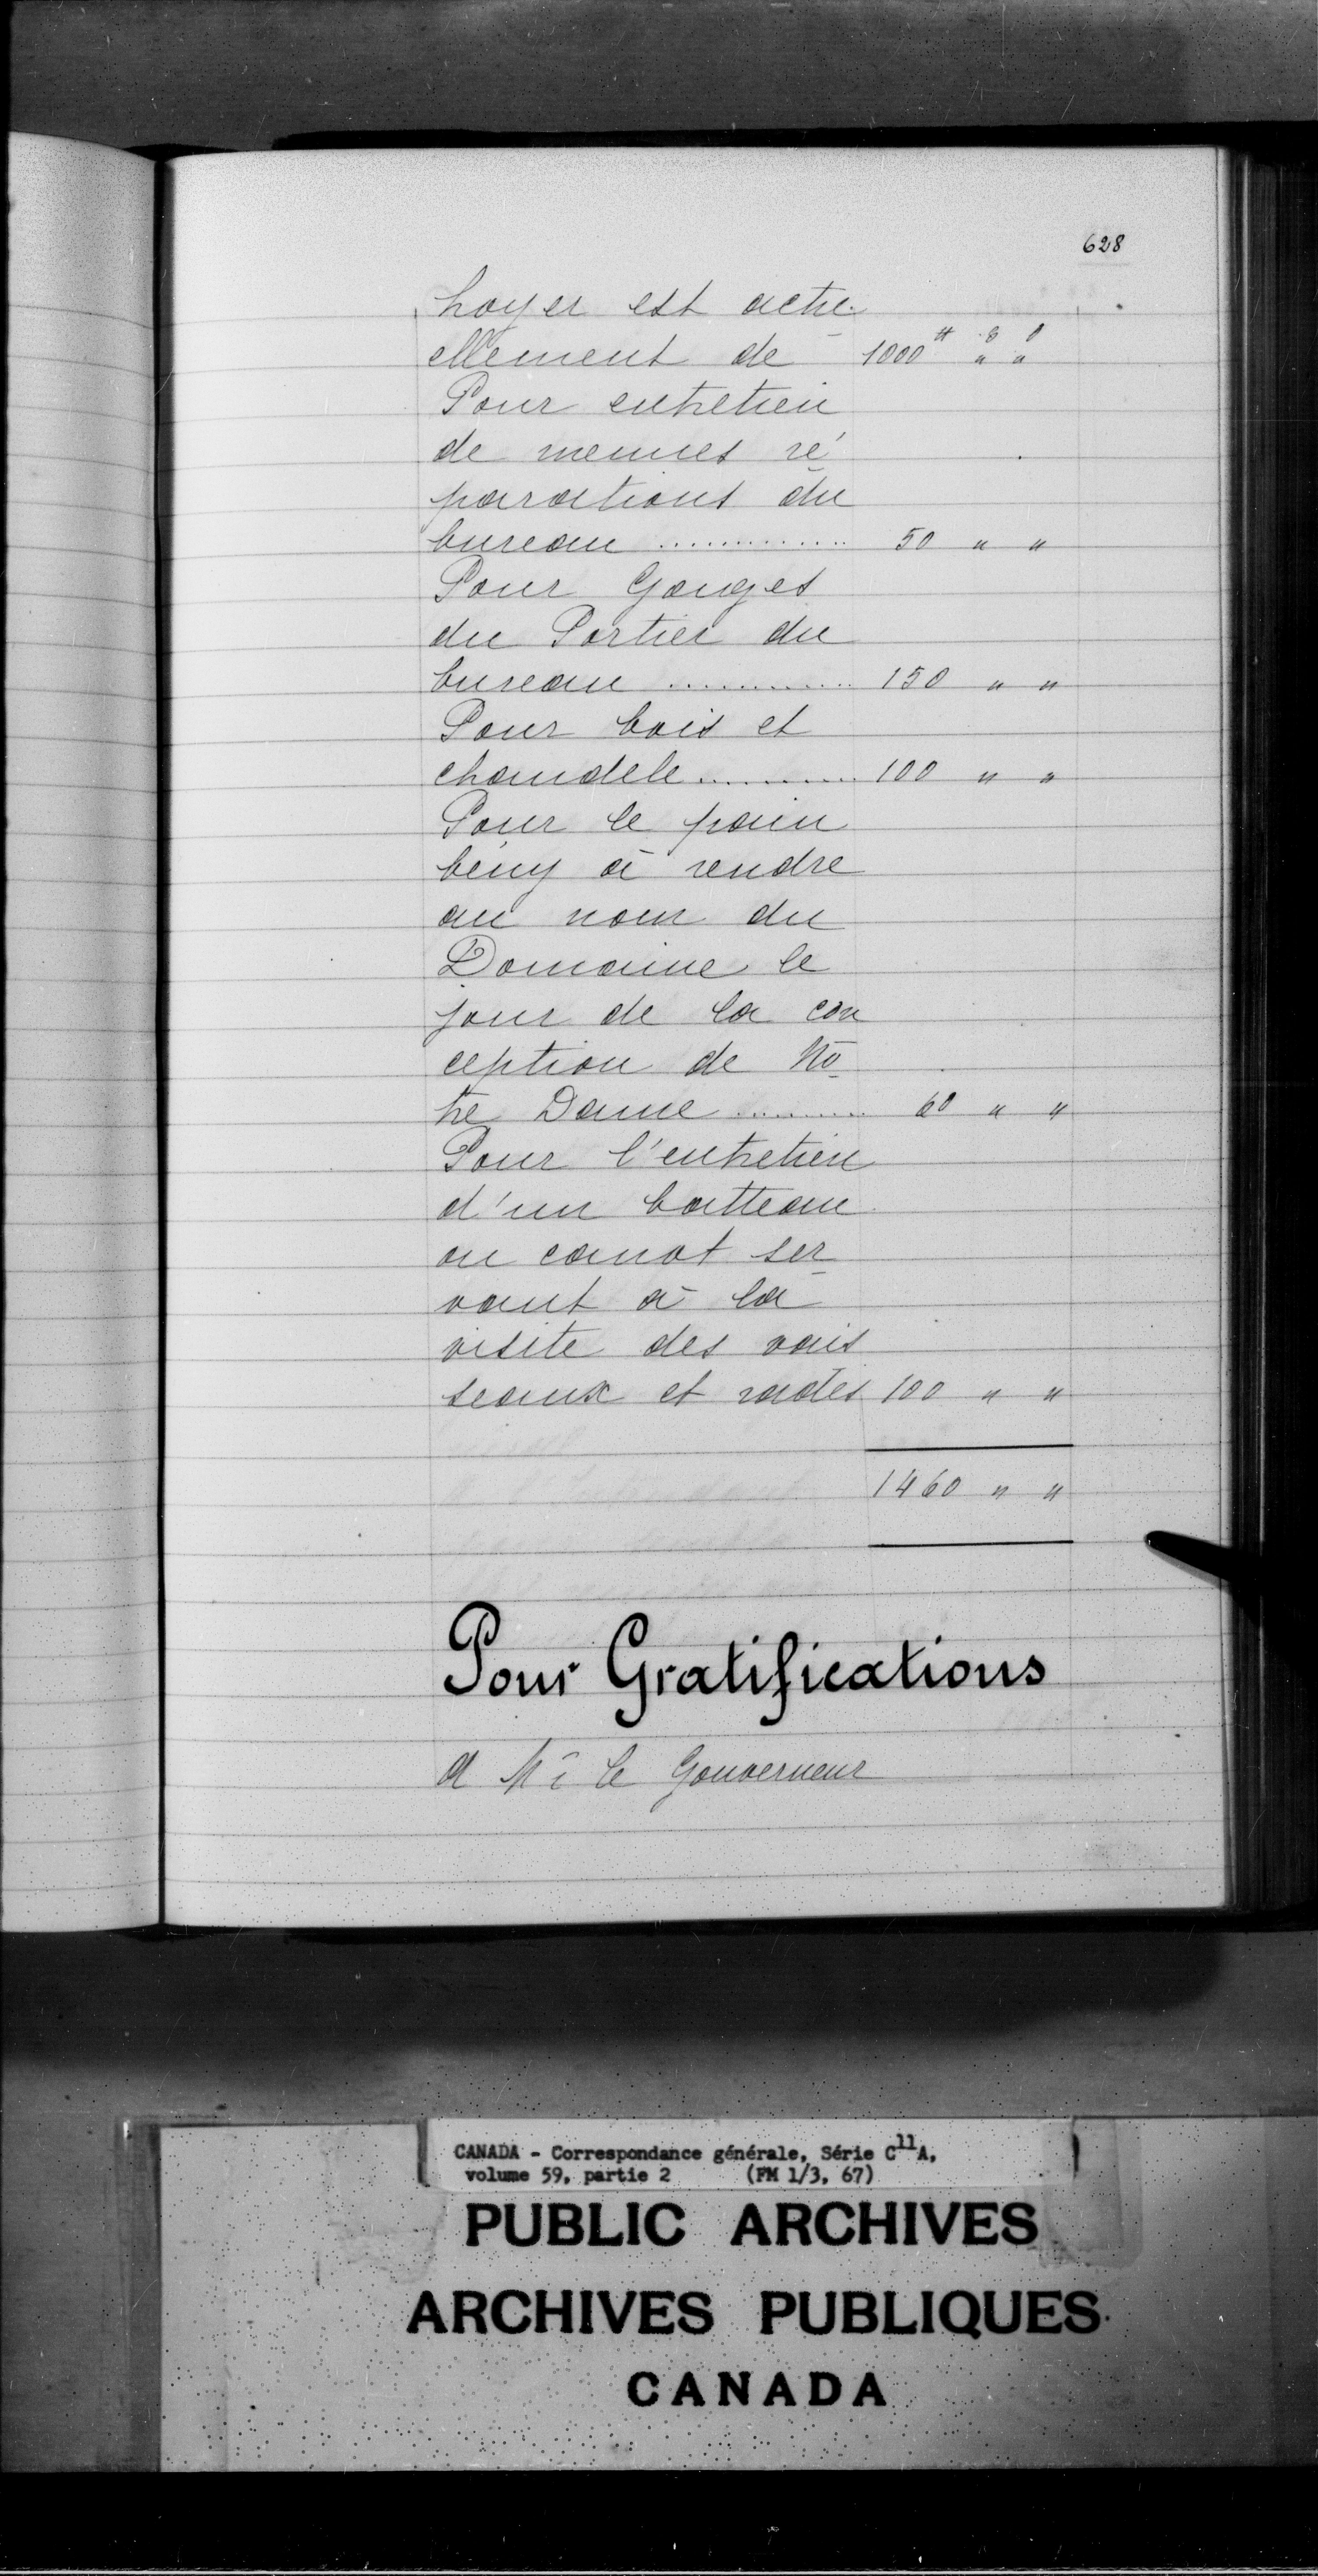 628
Loyer est actu
ellement de 1000 ₶ s d
" "
Pour entretien
de menues ré
parations du
bureau ............ 50 " "
Pour Gauges
du Portier du
bureau ............ 150 " "
Pour bois et
chandele ............ 100 " "
Pour le pain
bény à rendre
au nom du
Domaine le
jour de la con
ception de No
tre Dame ......... 60 " "
Pour l'entretien
d'un batteau
ou canot ser
vant à la
visite des vais
seaux et rades 100 " "
1460 " "
Pour Gratifications
A Mr le Gouverneur
CANADA - Correspondance générale, Série C11A,
volume 59, partie 2 (FM 1/3, 67)
PUBLIC ARCHIVES
ARCHIVES PUBLIQUES
CANADA